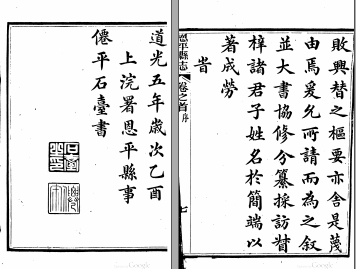 敗興替之樞要亦舍是蔑
由焉爰允所請而為之叙
並大書協修分纂採訪督
梓諸君子姓名於簡端以
著成勞
旹
恩平縣志
卷之首
序
七
道光五年歲次乙酉
上浣署恩平縣事
僊平石臺書